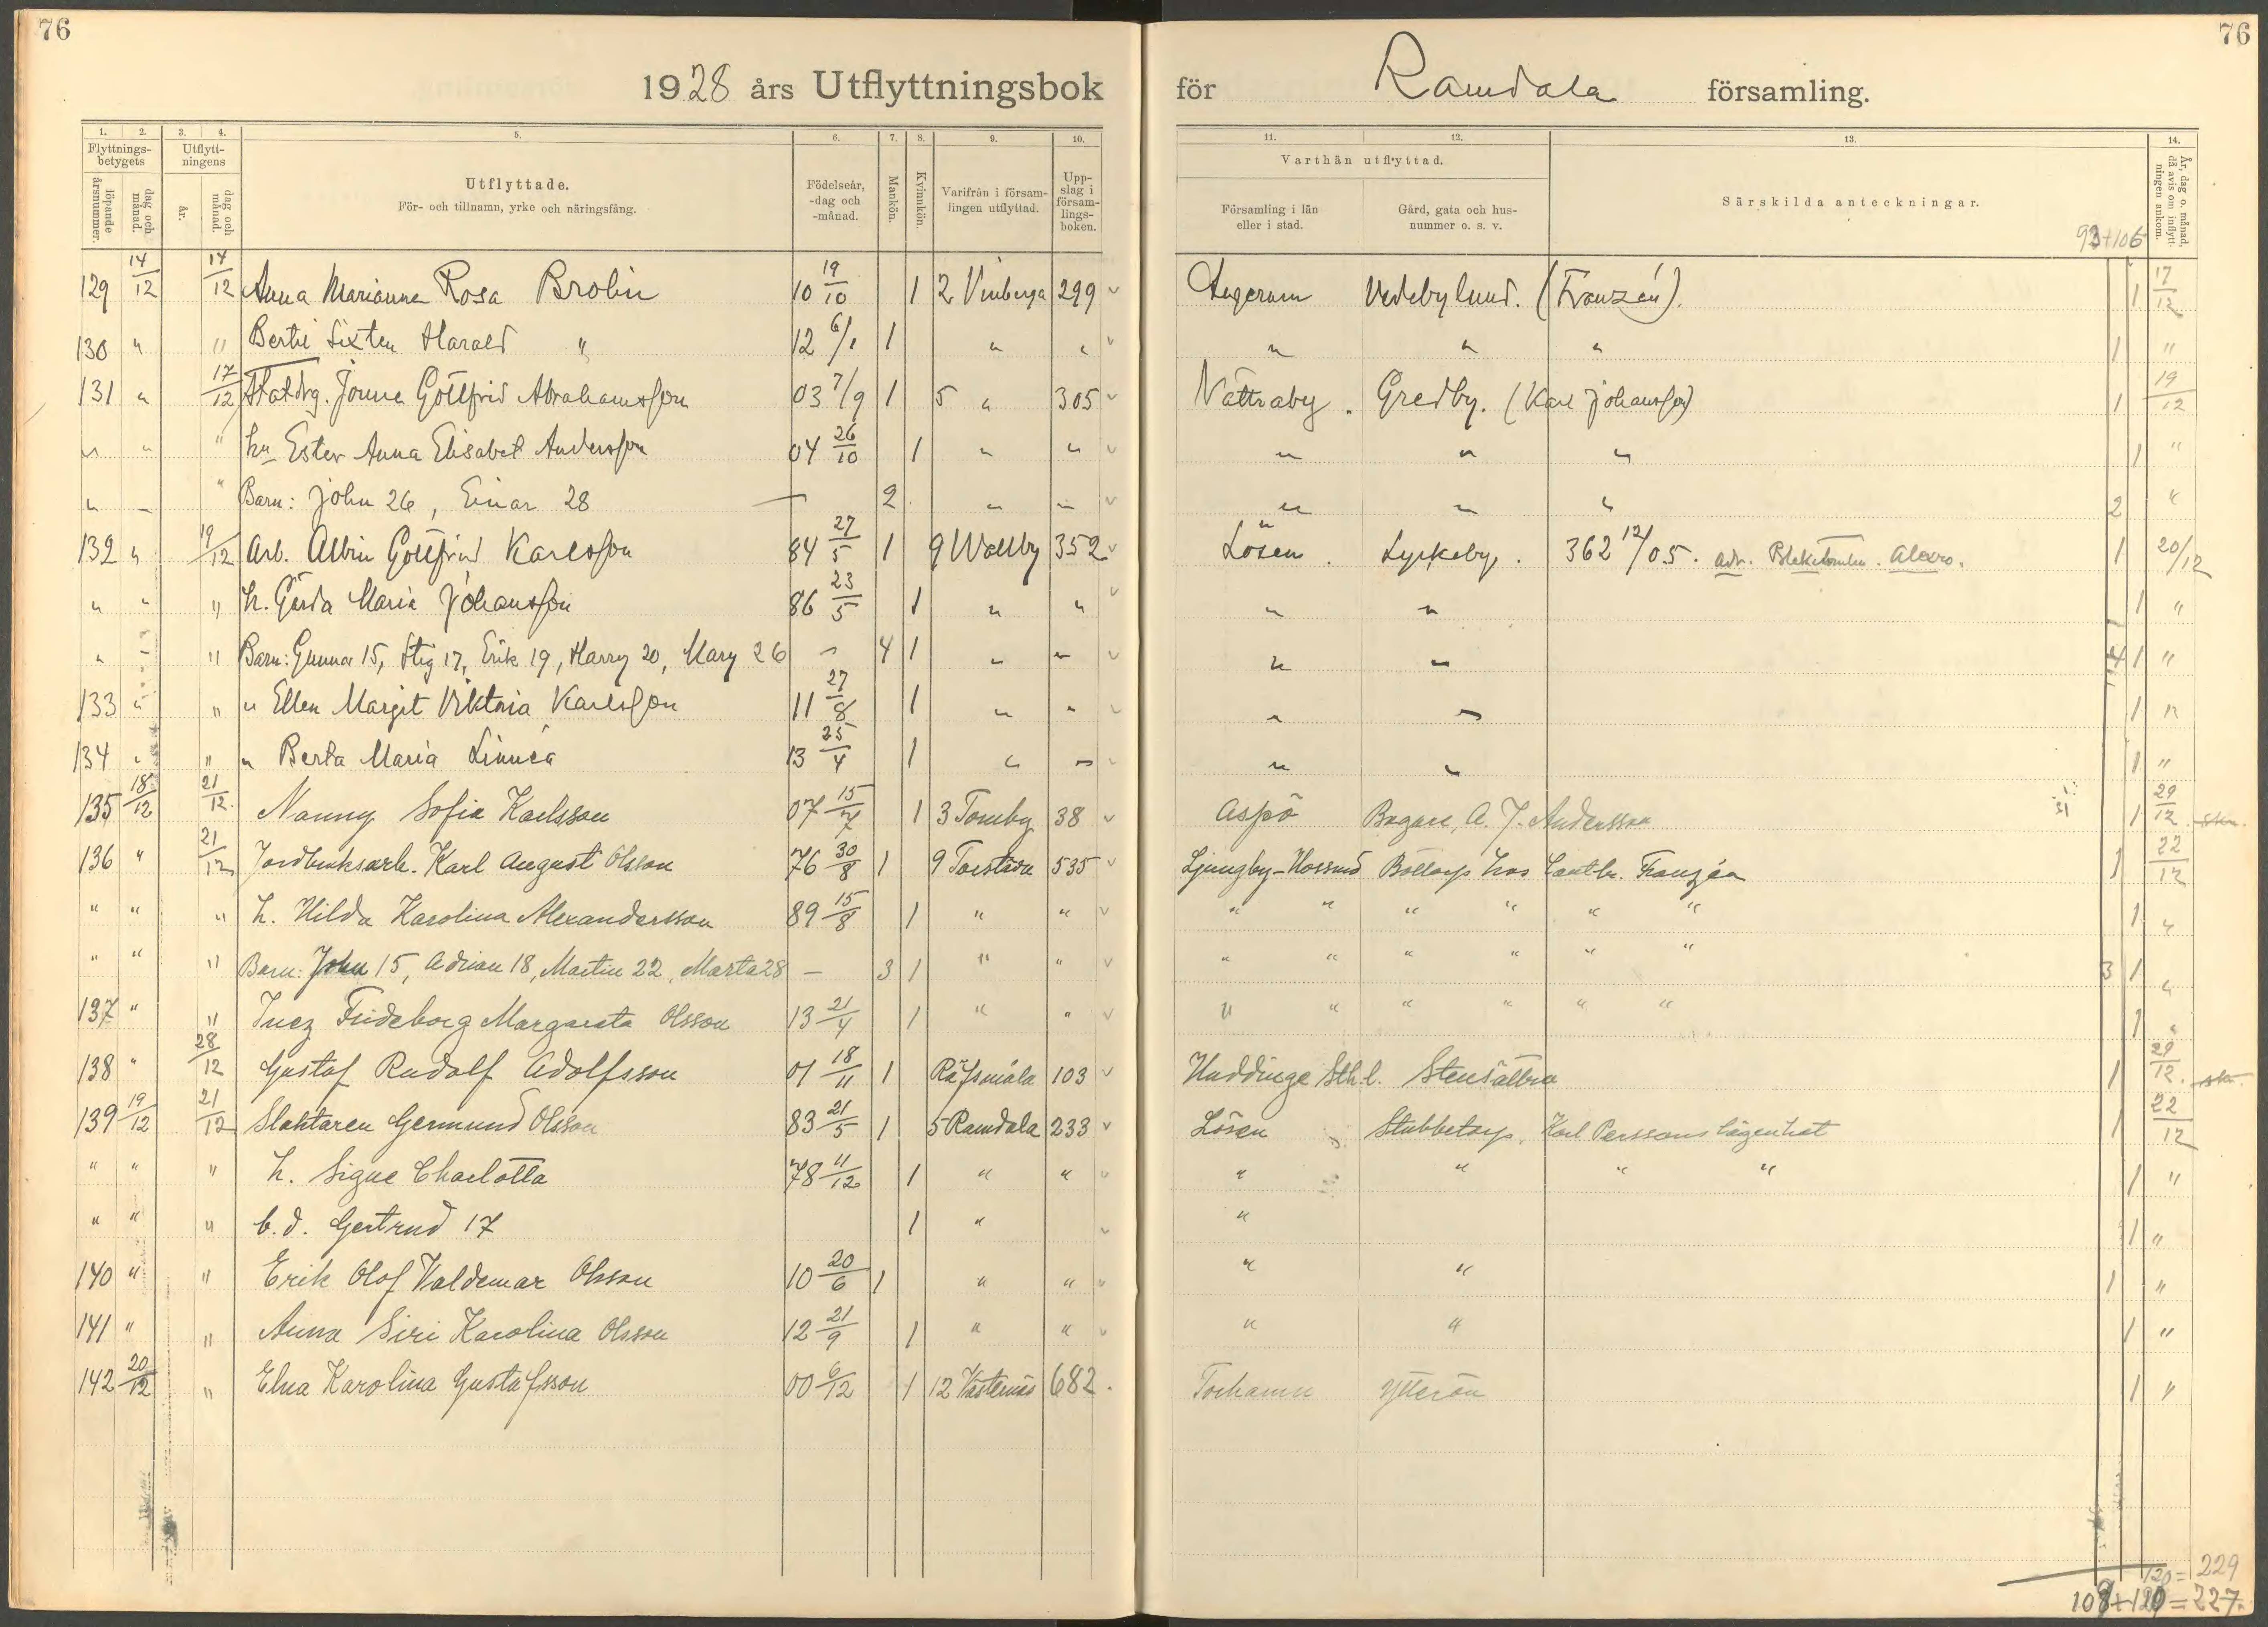 76
76
1928 års Utflyttningsbok för Ramdala församling.
1. 2. 3. 4. 5. 6. 7. 8. 9. 10. 11. 12. 13. 14.
Flyttnings-betygets
löpande årsnummer.
dag och månad.
Utflytt-ningens
år.
dag och månad.
Utflyttade.
För- och tillnamn, yrke och näringsfång.
Födelseår, -dag och -månad.
Mankön.
Kvinnkön.
Varifrån i försam-lingen utflyttad.
Upp-slag i försam-lings-boken.
Varthän utflyttad.
Församling i län eller i stad.
Gård, gata och hus-nummer o. s. v.
Särskilda anteckningar.
År, dag o. månad, då avis om inflytt-ningen ankom.
93+106
129 14/12 14/12 Anna Marianne Rosa Brolin 10 19/10 1 2 Vinberga 299 v Augerum Vedebylund. (Franzén). 1 17/12
130 " " Bertil Sixten Harald " 12 6/1 1 " " v " " " 1 "
131 " 17/12 Statdrg. Jonne Gottfrid Abrahamsson 03 7/9 1 5 " 305 v Nättraby. Gredby. (Karl Johansson) 1 19/12
" " " hu Ester Anna Elisabet Andersson 04 26/10 1 " " v " " " 1 "
" — " Barn: John 26, Einar 28 — 2 " " v " " " 2 "
132 " 19/12 Arb. Albin Gottfrid Karlsson 84 27/5 1 9 Wallby 352 v Lösen. Lyckeby. 362 12/05. adr. 1 20/12
" " " h. Gerda Maria Johansson 86 23/5 1 " " v " " 1 "
" " " Barn: Gunnar 15, Stig 17, Erik 19, Harry 20, Mary 26 " 4 1 " " v " " 4 1 "
133 " " " Ellen Margit Viktoria Karlsson 11 27/8 1 " " v " " 1 "
134 " " " Berta Maria Linnéa 13 25/4 1 " " v " " 1 "
135 18/12 21/12 Nanny Sofia Karlsson 07 15/7 1 3 Tomby 38 v Aspö Bagare, A. J. Andersson 1 29/12
136 " 21/12 Jordbruksarb. Karl August Olsson 76 30/8 1 9 Torstäva 535 v Ljungby-Hossmo Bottorp hos Lantbr. Franzén 1 22/12
" " " h. Hilda Karolina Alexandersson 89 15/8 1 " " v " " " " " " 1 "
" " " Barn: John 15, Adrian 18, Martin 22, Marta 28 — 3 1 " " v " " " " " " 3 1 "
137 " " Inez Frideborg Margareta Olsson 13 21/4 1 " " v " " " " " " 1 "
138 " 28/12 Gustaf Rudolf Adolfsson 01 18/11 1 Räfsmåla 103 v Huddinge Sth. l. Stensättra 1 29/12
139 19/12 21/12 Slaktaren Germund Olsson 83 21/5 1 5 Ramdala 233 v Lösen Stubbetorp, Karl Perssons lägenhet 1 22/12
" " " h. Signe Charlotta 78 11/12 1 " " v " " " " 1 "
" " " b. d. Gertrud 17 1 " v " 1 "
140 " " Erik Olof Valdemar Olsson 10 20/6 1 " " v " " 1 "
141 " " Anna Siri Karolina Olsson 12 21/9 1 " " v " " 1 "
142 20/12 " Elna Karolina Gustafsson 00 6/12 1 12 Västernäs 682. Torhamn Ytterön 1 "
120 = 229
108+120=227